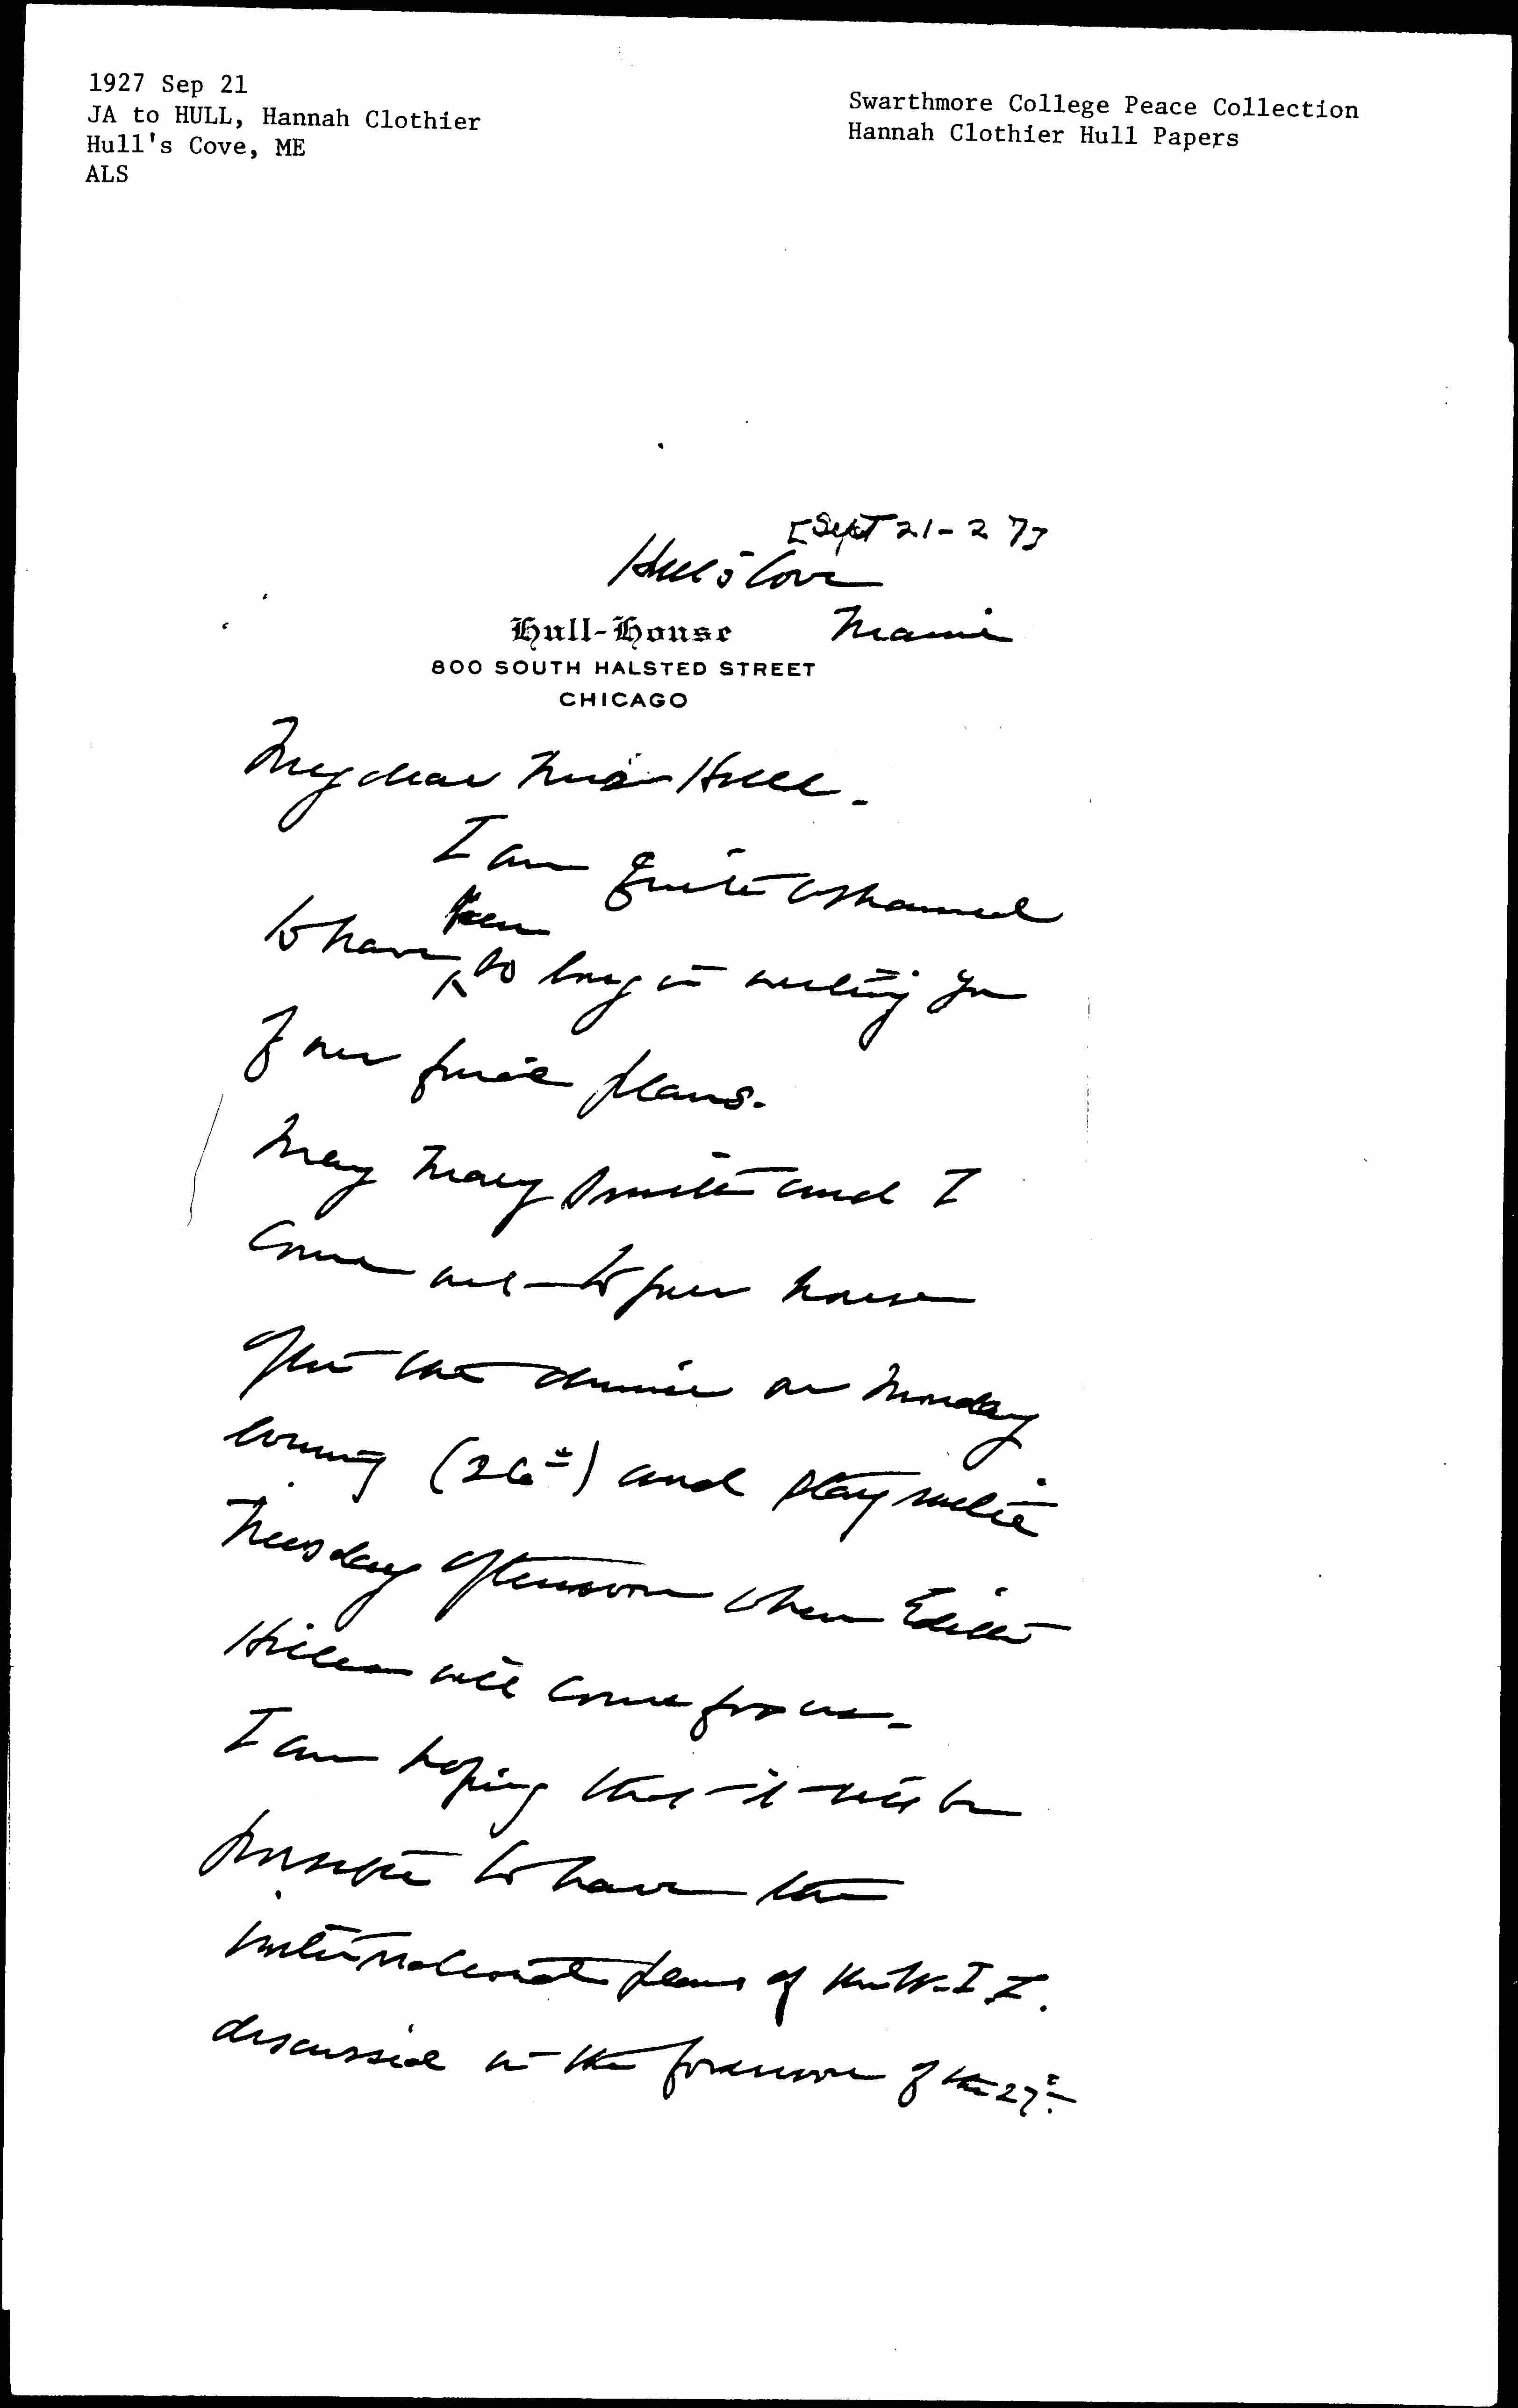 1927 Sep 21
JA to HULL, Hannah Clothier
Hull's Cove, ME
ALS
Swarthmore College Peace Collection
Hannah Clothier Hull Papers
[Sept 21-27]
Hull's Cove
Maine
Hull-House
800 SOUTH HALSTED STREET
CHICAGO
My dear Mrs Hull.
I am quite ashamed
to have been so long in writing you
of our final plans.
May Mary Smith and I
come out to your house
after the dinner on Monday
coming (26th) and stay until
Tuesday afternoon when Edith
Hilles will come for us.
I am hoping that it will be
possible to have the
international plans of the W.I.L.
discussed in the forenoon of the 27th.